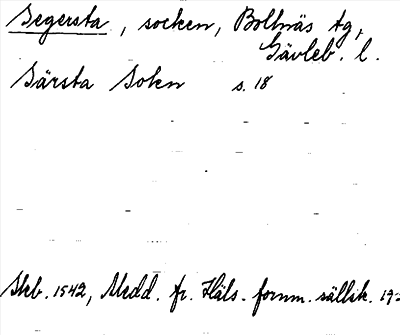 Segersta, socken, Bollnäs tg,
Gävleb. l.
Särsta Soken s. 18
Skb. 1542, Medd. fr. Häls. fornm. sällsk. 19